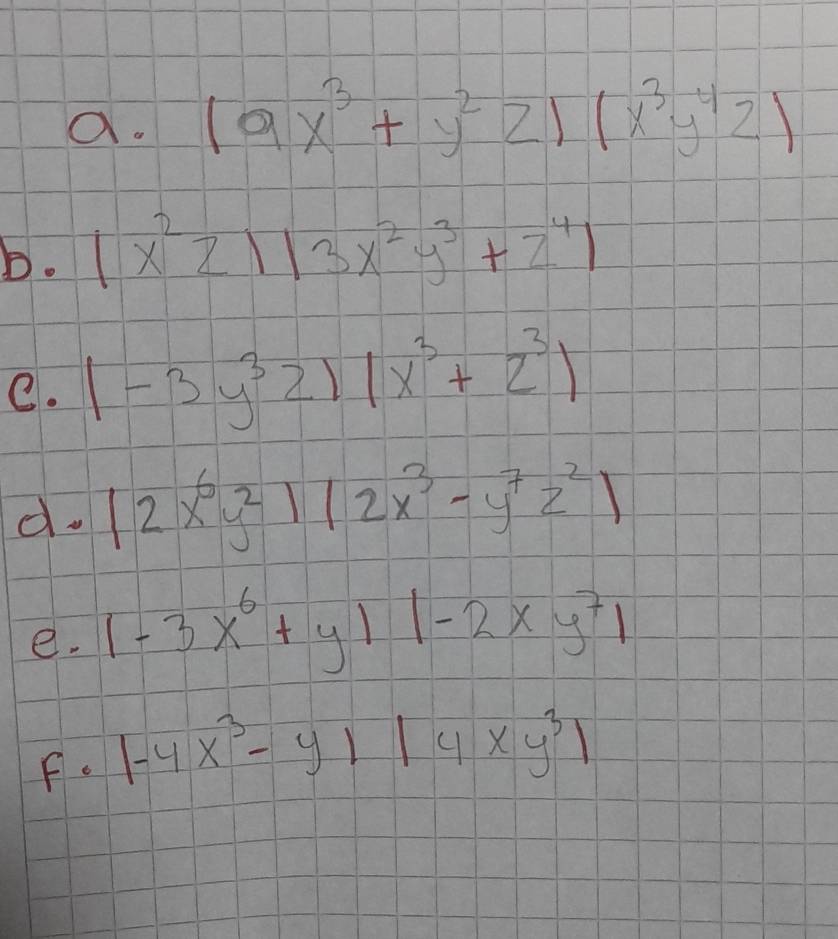 a. (9x³ + y² z) (x³y⁴z)
b. (x² z) (3x² y³ + z⁴)
c. (-3 y³ z) (x³ + z³)
d. (2x⁶y²) (2x³ - y⁷ z²)
e. (-3x⁶ + y) (-2xy⁷)
f. (-4x³ - y) (4xy³)